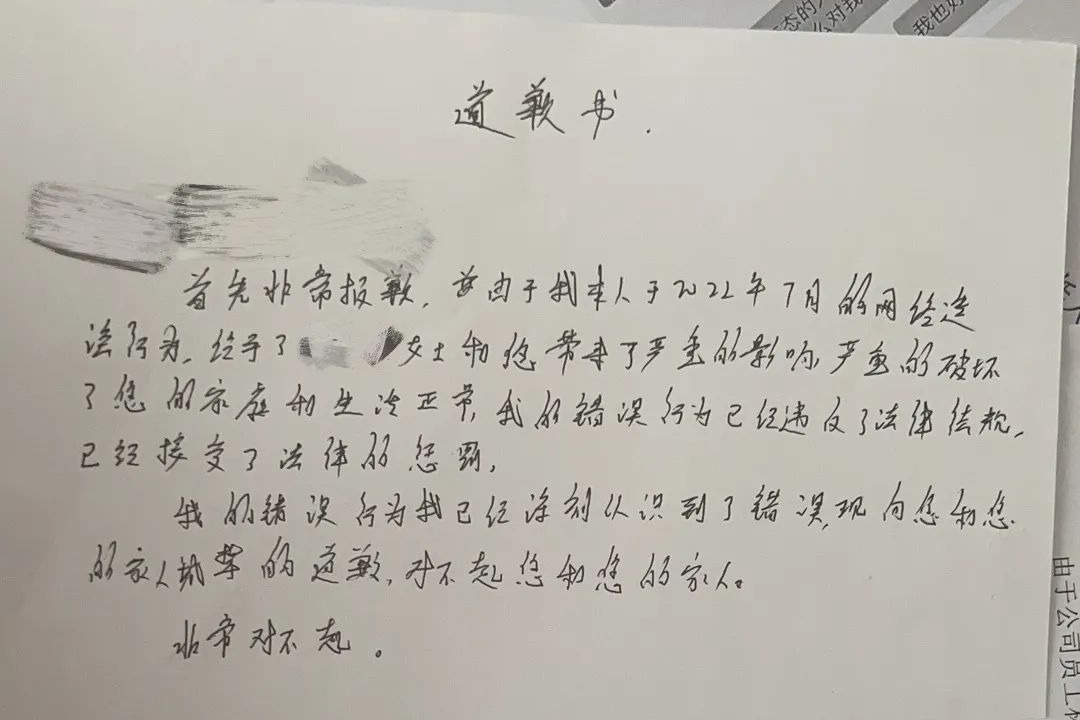 道歉书.
首先非常报歉,由于我本人于2022年7月的网络违
法行为,给予了
女士和您带来了严重的影响严重的破坏
了您的家庭和生活正常,我的错误行为已经违反了法律法规,
已经接受了法律的惩罚,
我的错误行为我已经深刻认识到了错误,现向您和您
的家人诚挚的道歉,对不起您和您的家人。
非常对不起。
态的
么对我
我也好
由于公司员工